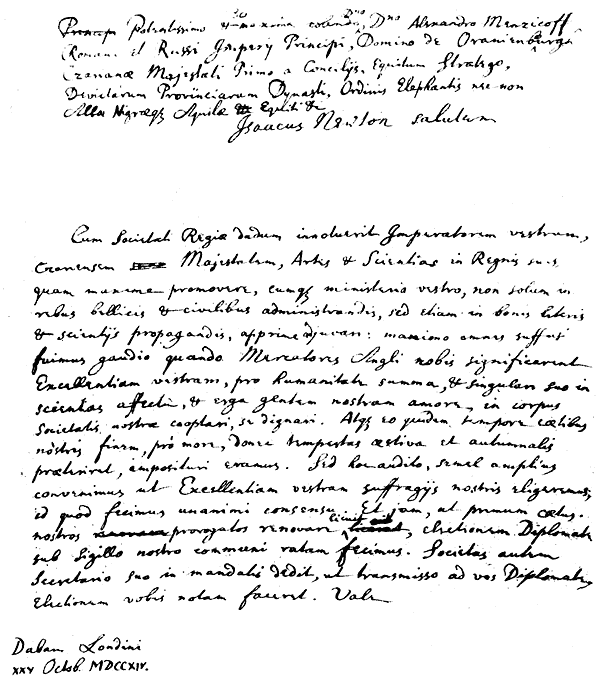 Potentissimo et maxime colendo Dno Dno Alexandro Menzicoff
Romani et Russi Imperij Principi, Domino de Oranienburgh
Czarianæ Majestati Primo a Concilijs, Equitum Stratego,
Devictarum Provinciarum Dynastæ, Ordinis Elephantis nec non
Albæ Nigræq Aquilæ Equiti &
Isaacus Newton salutem
Cum Societati Regiæ dudum innotuerit Imperatorem vestrum,
Majestatem, Artes & Scientias in Regnis suis
quam maxime promovere, eumq ministerio vestro, non solum in
rebus bellicis & civilibus administrandis, sed etiam in bonis literis
& scientijs propagandis, apprime adjuvari: maximo omnes suffusi
fuimus gaudio quando Mercatores Angli nobis significarent
Excellentiam vestram, pro humanitate summa, & singulari suo in
scientias affectu, & erga gentem nostram amore, in corpus
Societatis nostræ cooptari, se dignari. Atq eo quidem tempore cœtibus
nostris finem, pro more, donec tempestas æstiva et autumnalis
præteriret, imposituri eramus. Sed hoc audito, semel amplius
convenimus ut Excellentiam vestram suffragijs nostris eligeremus;
id quod fecimus unanimi consensu. Et jam, ut primum cœtus
nostros prorogatos renovare licuit, electionem Diplomate
sub Sigillo nostro communi ratam fecimus. Societas autem
Secretario suo in mandatis dedit, ut transmisso ad vos Diplomate,
electionem vobis notam faceret. Vale
Dabam Londini
xxv Octob. MDCCXIV.